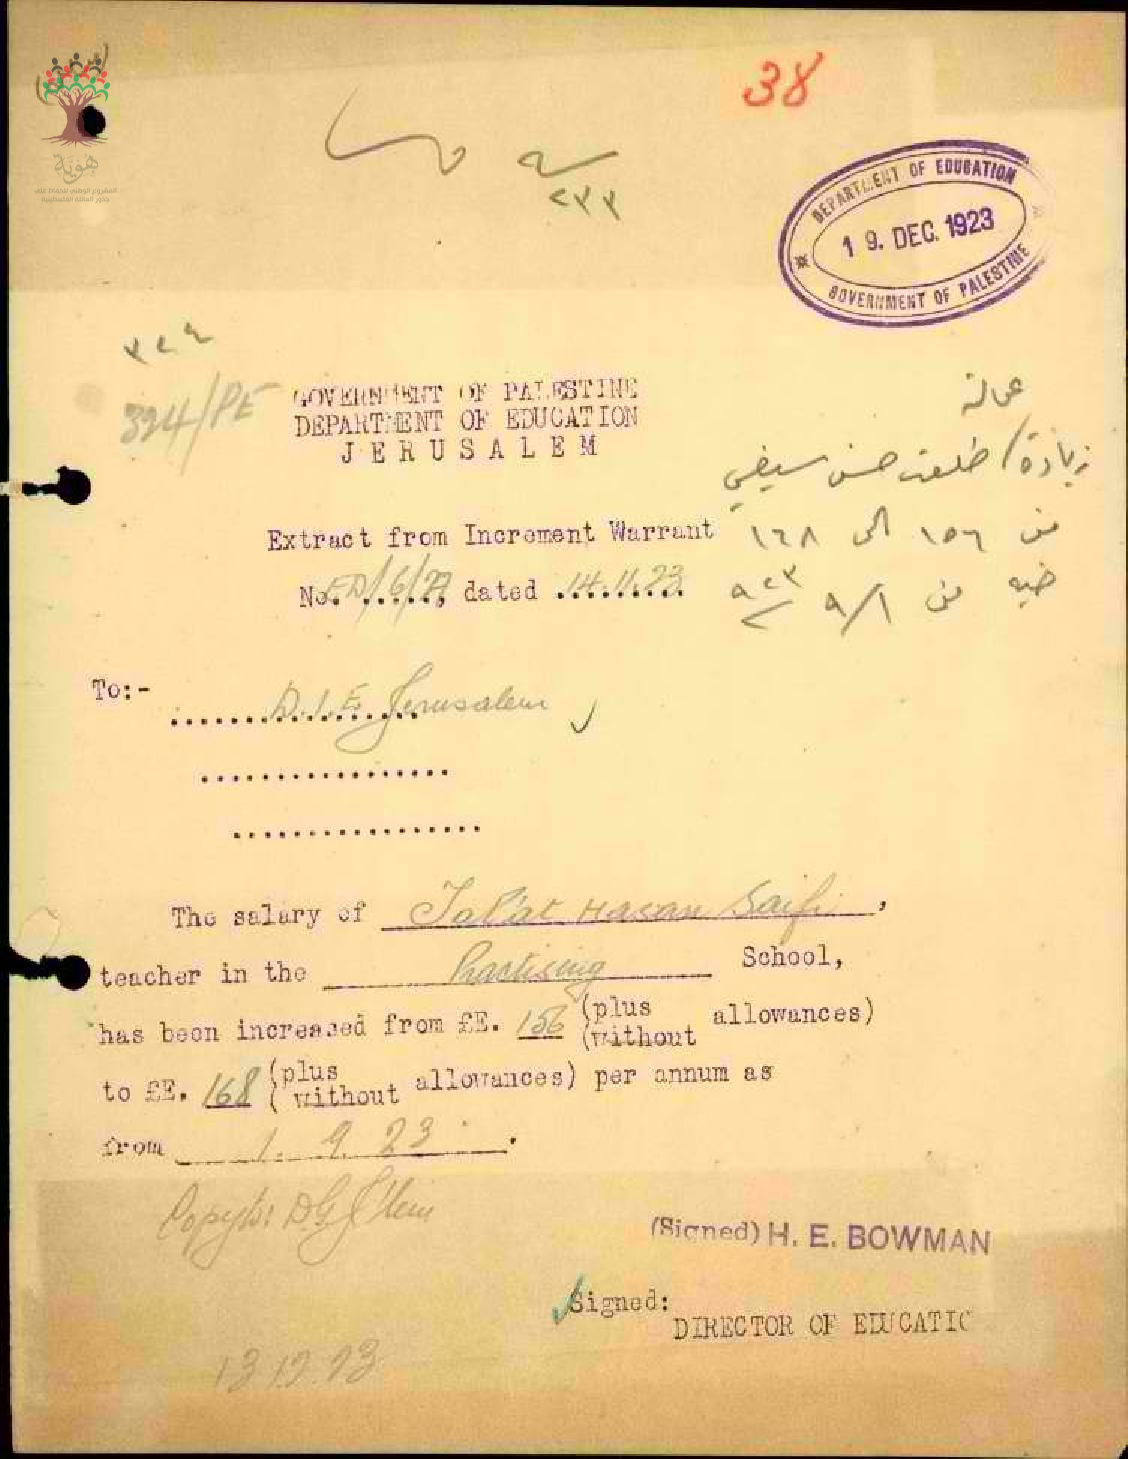 38
هوية
المشروع الوطني للحفاظ على
جذور العائلة الفلسطينية
٢٣٣
DEPARTMENT OF EDUCATION
19. DEC. 1923
GOVERNMENT OF PALESTINE
٣٢٤
324/PE
GOVERNMENT OF PALESTINE
DEPARTMENT OF EDUCATION
JERUSALEM
زيادة / طلعت حسن سيفي
Extract from Increment Warrant
من ١٥٦ الى ١٦٨
No. ED/6/23, dated 14.11.23
من ٩/١ ٩٢٣
To:-
D.I.E Jerusalem
The salary of Tal'at Hasan Saifi,
teacher in the Practising School,
has been increased from £E. 156 (plus (without allowances)
to £E. 168 (plus (without allowances) per annum as
from 1. 9. 23.
Copy to: D.G. J'lem
(Signed) H. E. BOWMAN
Signed:
DIRECTOR OF EDUCATIO
13.12.23